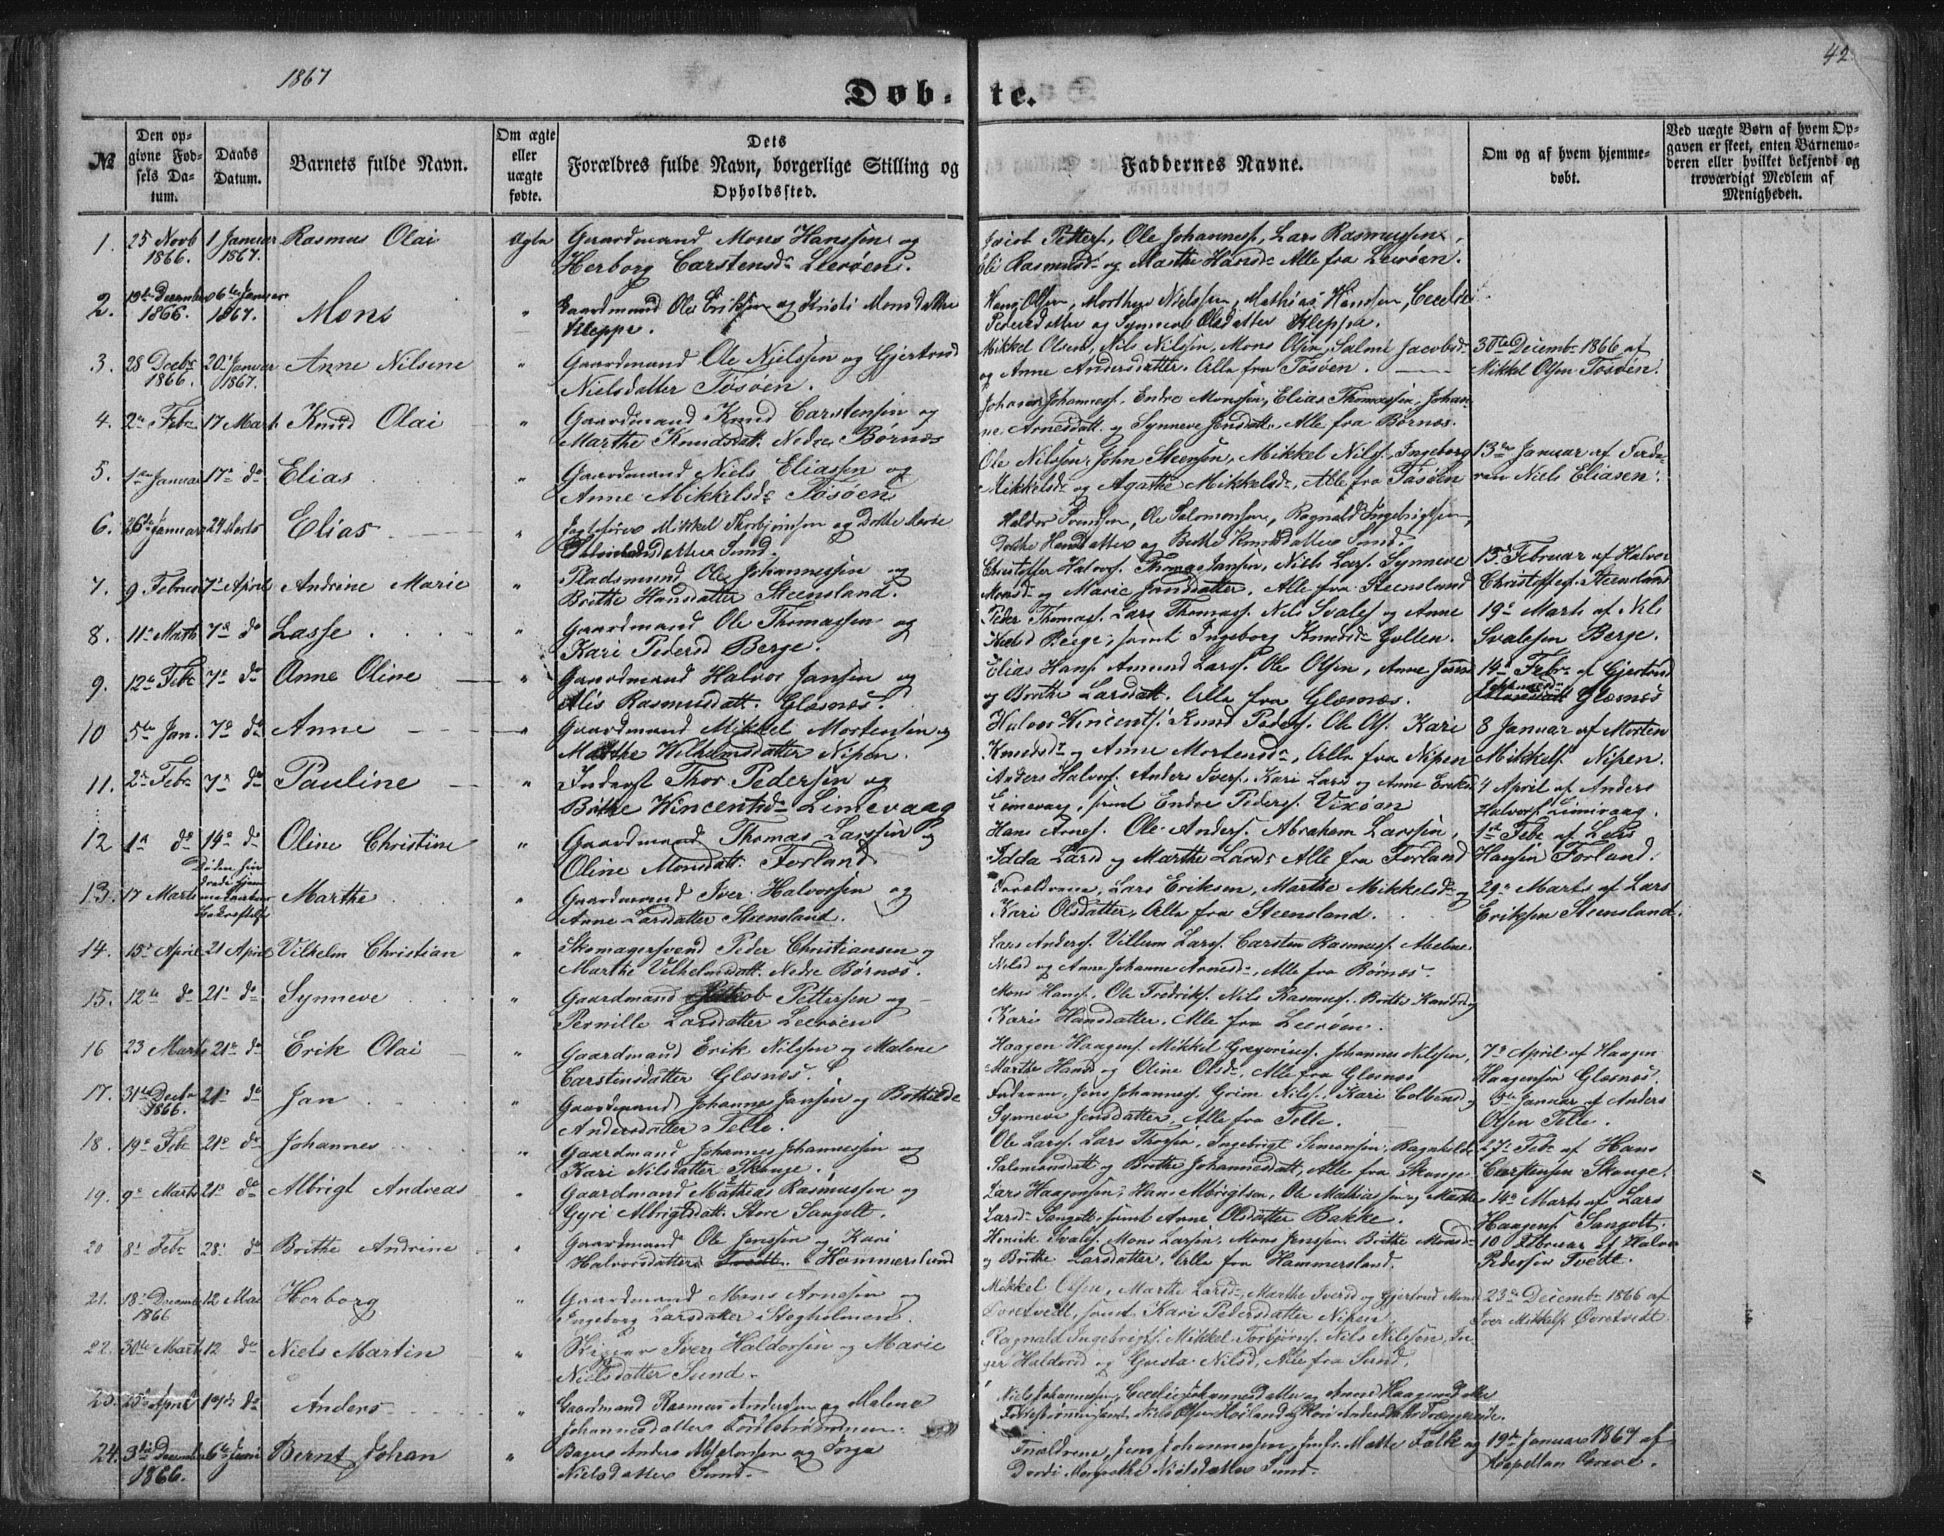 1867
42
Døb-te.
№
Den opgivne Fødsels Datum.
Daabs Datum.
Barnets fulde Navn.
Om ægte eller uægte fødte.
Dets Forældres fulde Navn, borgerlige Stilling og Opholdssted.
Faddernes Navne.
Om og af hvem hjemmedøbt.
Ved uægte Børn af hvem Opgaven er skeet, enten Barnemoderen eller hvilket bekjendt og troværdigt Medlem af Menigheden.
1. 25 Novb 1 Januar Rasmus Olai Ægte Gaardmand Mons Hanssen og Jacob Petters, Ole Johanness, Lars Rasmussen,
1866. 1867. Herborg Carstensdr Leerøen. Rasmusdr og Marthe Hansdr Alle fra Leerøen.
2. 19de December 6te Januar Mons " Gaardmand Ole Eriksen og Kristi Monsdatter Hans Olsen, Morthen Nielsen, Mathias Hansen, Cecelie
1866. 1867. Kleppe. Pedersdatter og Synneve Olsdatter Kleppe.
3. 28 Decbr 20 Januar Anne Nilsene " Gaardmand Ole Nielssen og Gjertrud Mikkel Olsen, Nils Nilsen, Mons Olsen, Salmi Jacobsd. 30te Decembr 1866 af
1866. 1867. Nielsdatter Tøsøen. og Anne Andersdatter. Alle fra Tøsøen. Mikkel Olsen Tøsøen.
4. 2n Febr 17 Mart. Knud Olai " Gaardmand Knud Carstensen og Johan Johanness. Endre Monssen, Elias Thomassen, Johan-
Marthe Knudsdatt. Nedre Børnes ne Arnesdatt og Synneve Jensdatt. Alle fra Børnes.
5. 1 Januar 17 do Elias " Gaardmand Niels Eliassen og Ole Nilssen, John Steensen, Mikkel Nils, Ingeborg 13de Januar af Fade-
Anne Mikkelsdr Tøsøen Mikkelsdr og Agathe Mikkelsdr, Alle fra Tøsøen ren Niels Eliasen.
6. 26de Januar 24 Marts Elias " Mikkel Thorbjørnsen og Dorthe Marie Haldor Svendsen, Ole Salomonsen, Ragnald Ingebrigtsen,
Sund. Dorthe Hansdatter og Brithe Knudsdatter Sund.
7. 9 Februar 7 April Andrine Marie " Pladsmand Ole Johannessen og Christoffer Halvors. Thomas Jansen, Niels Lars. Synneve 15 Februar af Halvor
Brithe Hansdatter Steensland. Monsdr og Marie Jansdatter, Alle fra Steensland Christoffers. Steensland
8. 11 Marts 7 do Lasse " Gaardmand Ole Thomassen og Peder Thomas. Lars Thomass. Nils Svales og Anne 19 Marts af Nils
Kari Pedersd Berge. Berge, samt Ingeborg Knudsdr Gullen. Svalesen Berge.
9. 12te Febr 7 do Anne Oline " Gaardmand Halvor Jansen og Elias Hans. Amund Lars. Ole Olsen, Anne 14 Febr af Gjertrud
Alis Rasmusdatt. Glæsnæs. og Brithe Larsdatt. Alle fra Glæsnæs. Glæsnæs
10 5te Jan. 7 do Anne " Gaardmand Mikkel Mortensen og Halvor Vincents. Knud Peders. Ole Ols. Kari 8 Januar af Morten
Marthe Vilhelmsdatter Nipen. Knudsdr og Anne Mortensdr, Alle fra Nipen Mikkels. Nipen.
11. 2 Febr 7 do Pauline " Inderst Thor Pedersen og Anders Halvors. Anders Ivers. Kari Larsd og Anne Eriksd. 4 April af Anders
Brithe Vincentsdr Limevaag Limevaag, samt Endre Peders. Vixøen Halvors. Limevaag.
12 1 do 14 do Oline Christine " Gaardmand Thomas Larssen og Hans Arnes. Ole Anders. Abraham Larssen, 1ste Febr af Lars
Oline Monsdatt. Forland. Idda Larsd og Marthe Larsdr Alle fra Forland Hansen Forland.
13. 17 Marts Marthe " Gaardmand Iver Halvorsen og Forældrene, Lars Eriksen, Marthe Mikkelsdr og 29 Marts af Lars
Anne Larsdatter Steensland. Kari Olsdatter, Alle fra Steensland. Eriksen Steensland.
14. 15 April 21 April Vilhelm Christian " Skomagersvend Peder Christiansen og Lars Anders. Villum Lars. Carsten Rasmus. Malene
Marthe Vilhelmsdatt. Nedre Børnæs. Nilsd og Anne Johanne Arnesdr, Alle fra Børnæs.
15. 12te do 21 do Synneve " Gaardmand Jakob Pettersen og Mons Hans. Ole Fredriks. Nils Rasmus. Brithe Hansdr og
Pernille Larsdatter Leerøen Kari Hansdatter, Alle fra Leerøen.
16 23 Marts 21 do Erik Olai " Gaardmand Erik Nilsen og Malene Haagen Haagens. Mikkel Gregorius. Johannes Nilsen, 7 April af Haagen
Carstensdatter Glæsnæs. Marthe Hansd og Oline Olsdr, Alle fra Glæsnæs Haagensen Glæsnæs.
17. 31te Decbr 21 do Jan " Gaardmand Johannes Jansen og Bothilde Faderen, Jens Johanness. Grim Nils. Kari Colbensd og 3de Januar af Anders
1866. Andersdatter Telle. Synneve Jensdatter, Alle fra Telle. Olsen Telle.
18. 19 Febr 21 do Johannes " Gaardmand Johannes Johannessen og Ole Lars. Lars Thorsen, Ingebrigt Simonsen, Ragnhilde 27 Febr af Hans
Kari Nilsdatter Skaage. Salomonsdatt og Brithe Johannesdatt, Alle fra Skaage. Carstensen Skaage.
19. 9 Marts 21 do Albrigt Andreas " Gaardmand Mathias Rasmussen og Lars Haagensen, Hans Albrigtsen, Ole Mathiassen og Marthe 14 Marts af Lars
Gyri Albrigtsdatt. Store Sangolt. Larsdr Sangolt, samt Anne Olsdatter Bakke. Haagens. Sangolt.
20 8 Febr 28 do Brithe Andrine " Gaardmand Ole Jenssen og Kari Hinrik Svales. Mons Larsen, Mons Jenssen, Brithe Monsdr 10 Februar af Halvor
Halvorsdatter Tvedt. Hammersland og Brithe Larsdatter, Alle fra Hammersland. Pedersen Tvedt.
21. 18 Decembr 12 Mai Herborg " Gaardmand Mons Arnesen og Mikkel Olsen, Marthe Larsdr, Marthe Iversd og Gjertrud Monsd 23de Decembr 1866 af
1866 Ingeborg Larsdatter Stegholmen. samt Kari Pedersdatter Nipen. Iver Mikkels. Øvretvedt
22. 30te Marts 12 do Niels Martin " Iver Haldorsen og Marie Ragnald Ingebrigts. Mikkel Torbjørns. Nils Nilsen, In-
Nielsdatter Sund. ger Haldorsd og Gusta Nilsd, Alle fra Sund.
23. 25 April 19de do Anders " Gaardmand Rasmus Andersen og Malene Niels Johannessen, Cecelie Johannesdatter og Anne Haagensdatter
Johannesdatter samt Niels Olsen Høiland
24. 3die December 6te Juni Bernt Johan " Bager Anders Abselonsen og Torga Forældrene, Jens Johannessen, Jomfr. Mette Falk og 19de Januar 1867 af
1866. Nielsdatter Sund. Dordi Margrethe Nielsdatter Sund. Kapellan Greve.